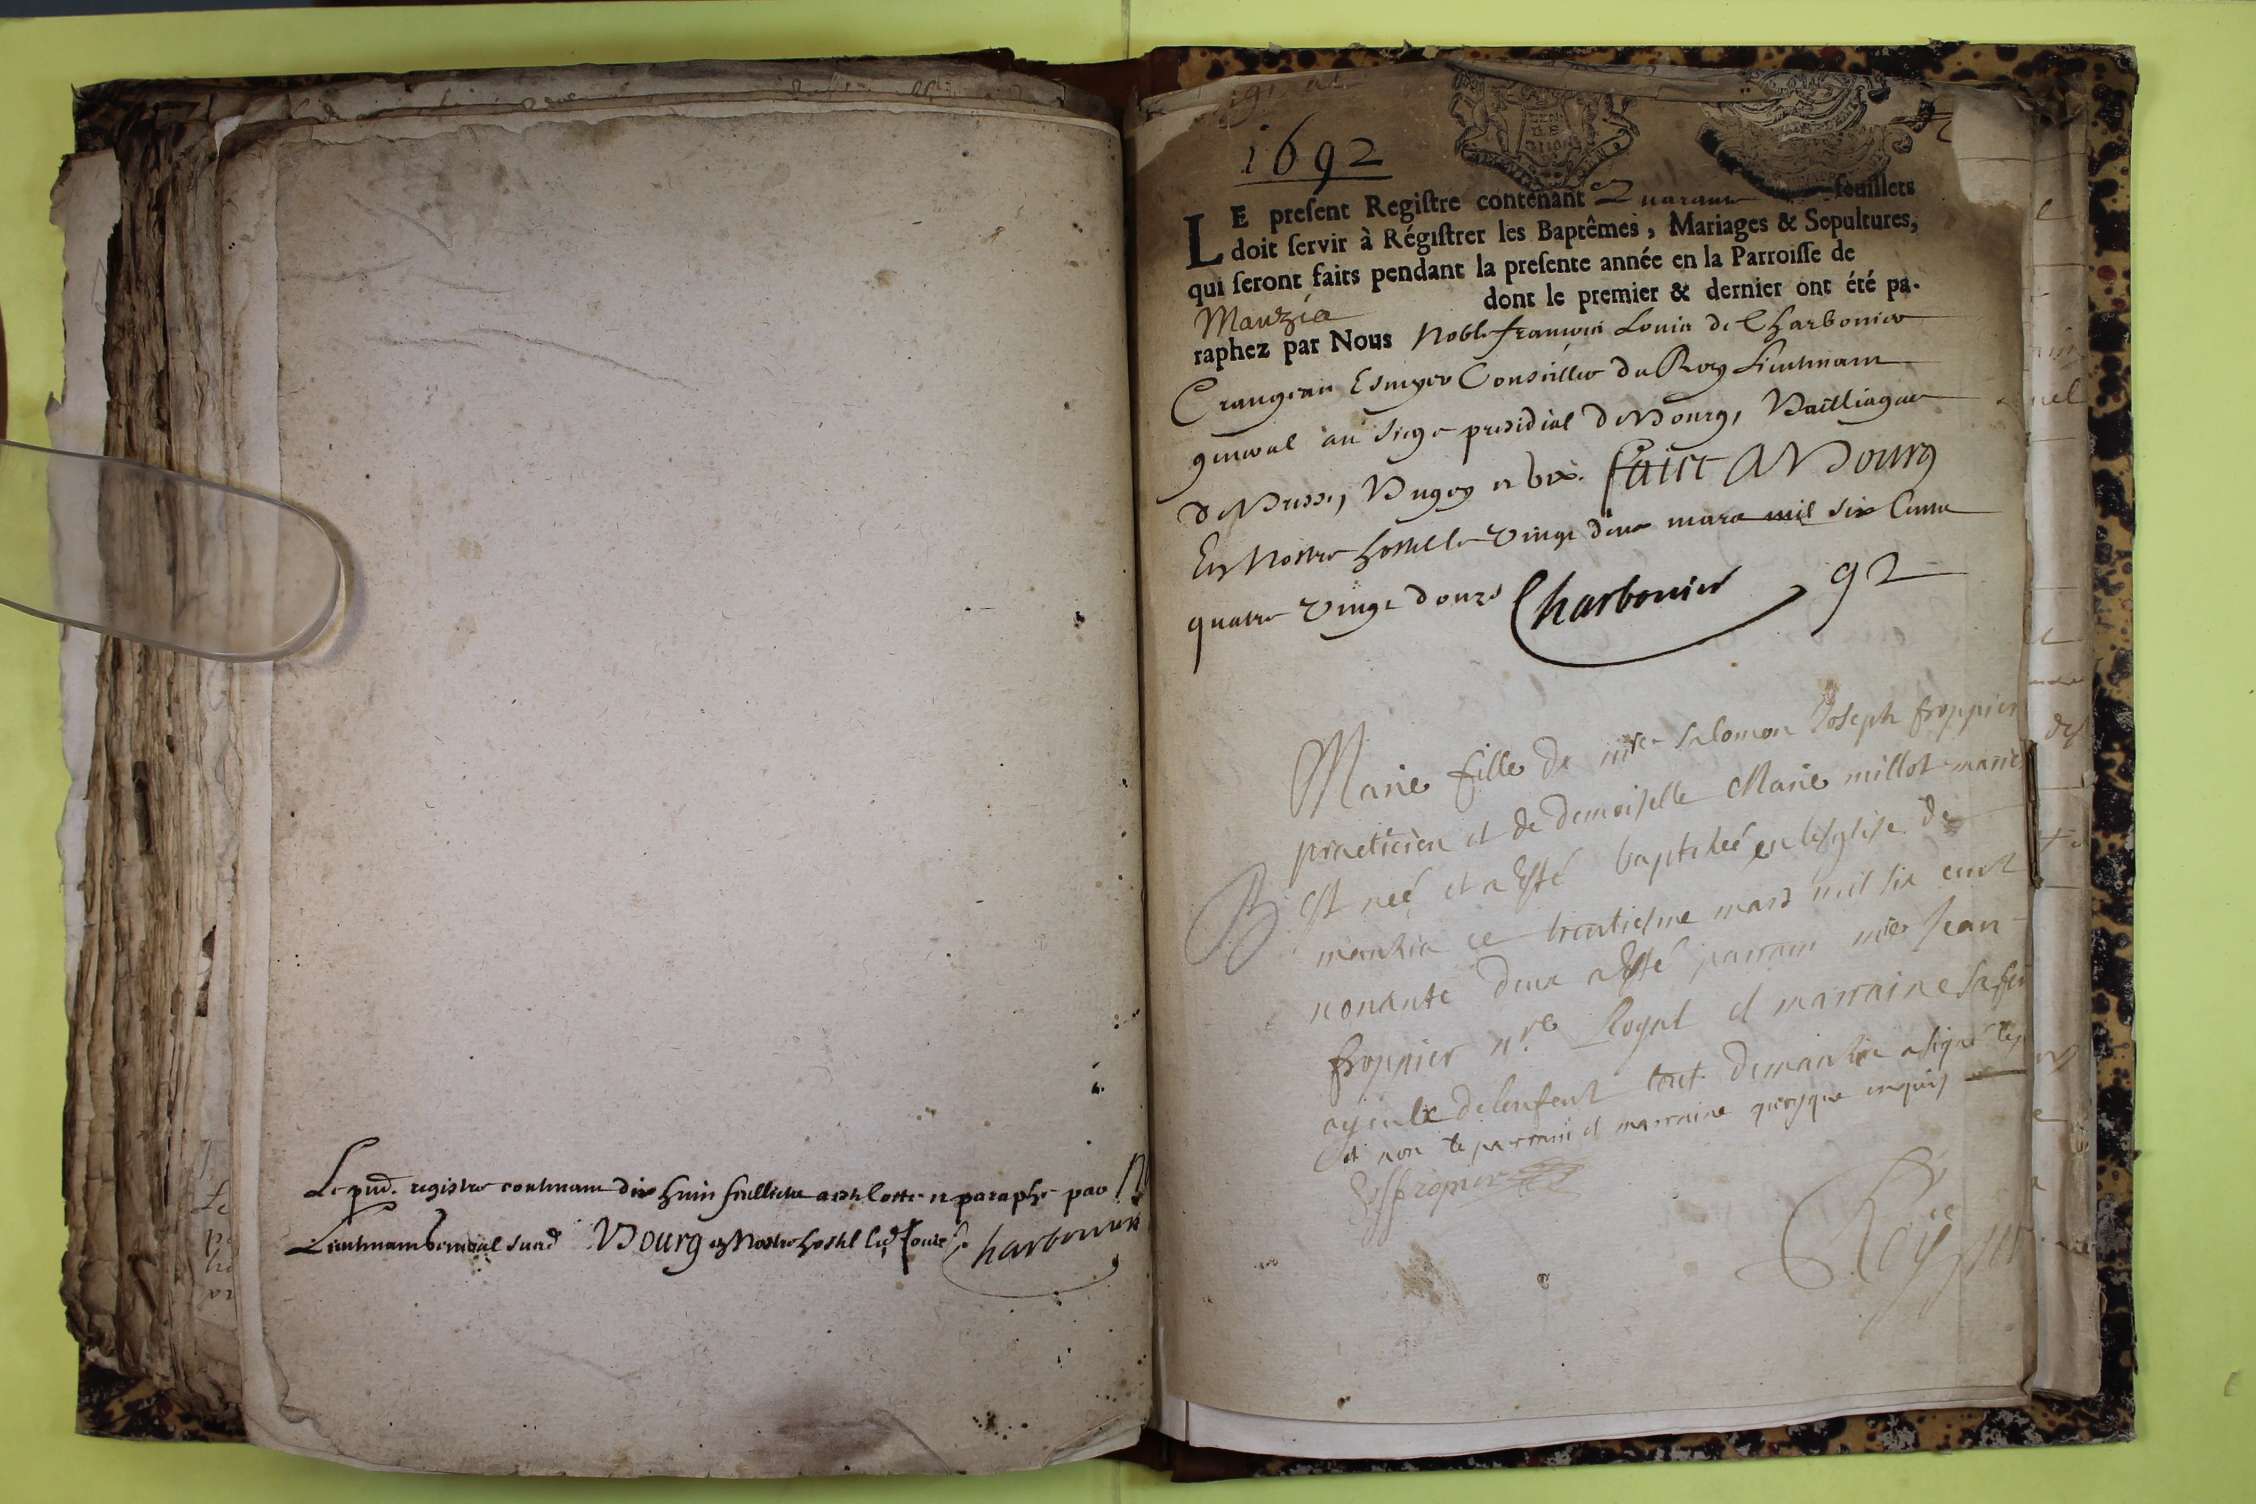 Le pnt. registre contenant dix huict feuilletz a esté cotté et paraphé par N
Lieutenant general susd Bourg en Nostre hostel led jour Charbonier
1692
LE preſent Regiſtre contenant Quarante feuillets
doit ſervir à Régiſtrer les Baptêmes, Mariages & Sepultures,
qui ſeront faits pendant la preſente année en la Parroiſſe de
Manzia dont le premier & dernier ont été pa-
raphez par Nous Noble francois Louis de Charbonier
Crangeac Escuyer Conseiller du Roy Lieutenant
general au siege presidial de Bourg, Bailliage
de Bresse, Bugey et Gex. faict A Bourg
En Nostre hostel le vingt deux mars mil six Cents
quatre vingt douze Charbonier 92
Marie fille de mre Salomon Joseph froppier
practicien et de demoiselle Marie millot mariés
B est neé et a esté baptiseé en leglise de
manzia ce trentiesme mars mil six cent
nonante deux a esté parrain mre Jean
froppier nre Royal et marraine
ayeule de lenfent tout de manzia a signé le
et non le parrain et marraine quoyque enquis
froppier